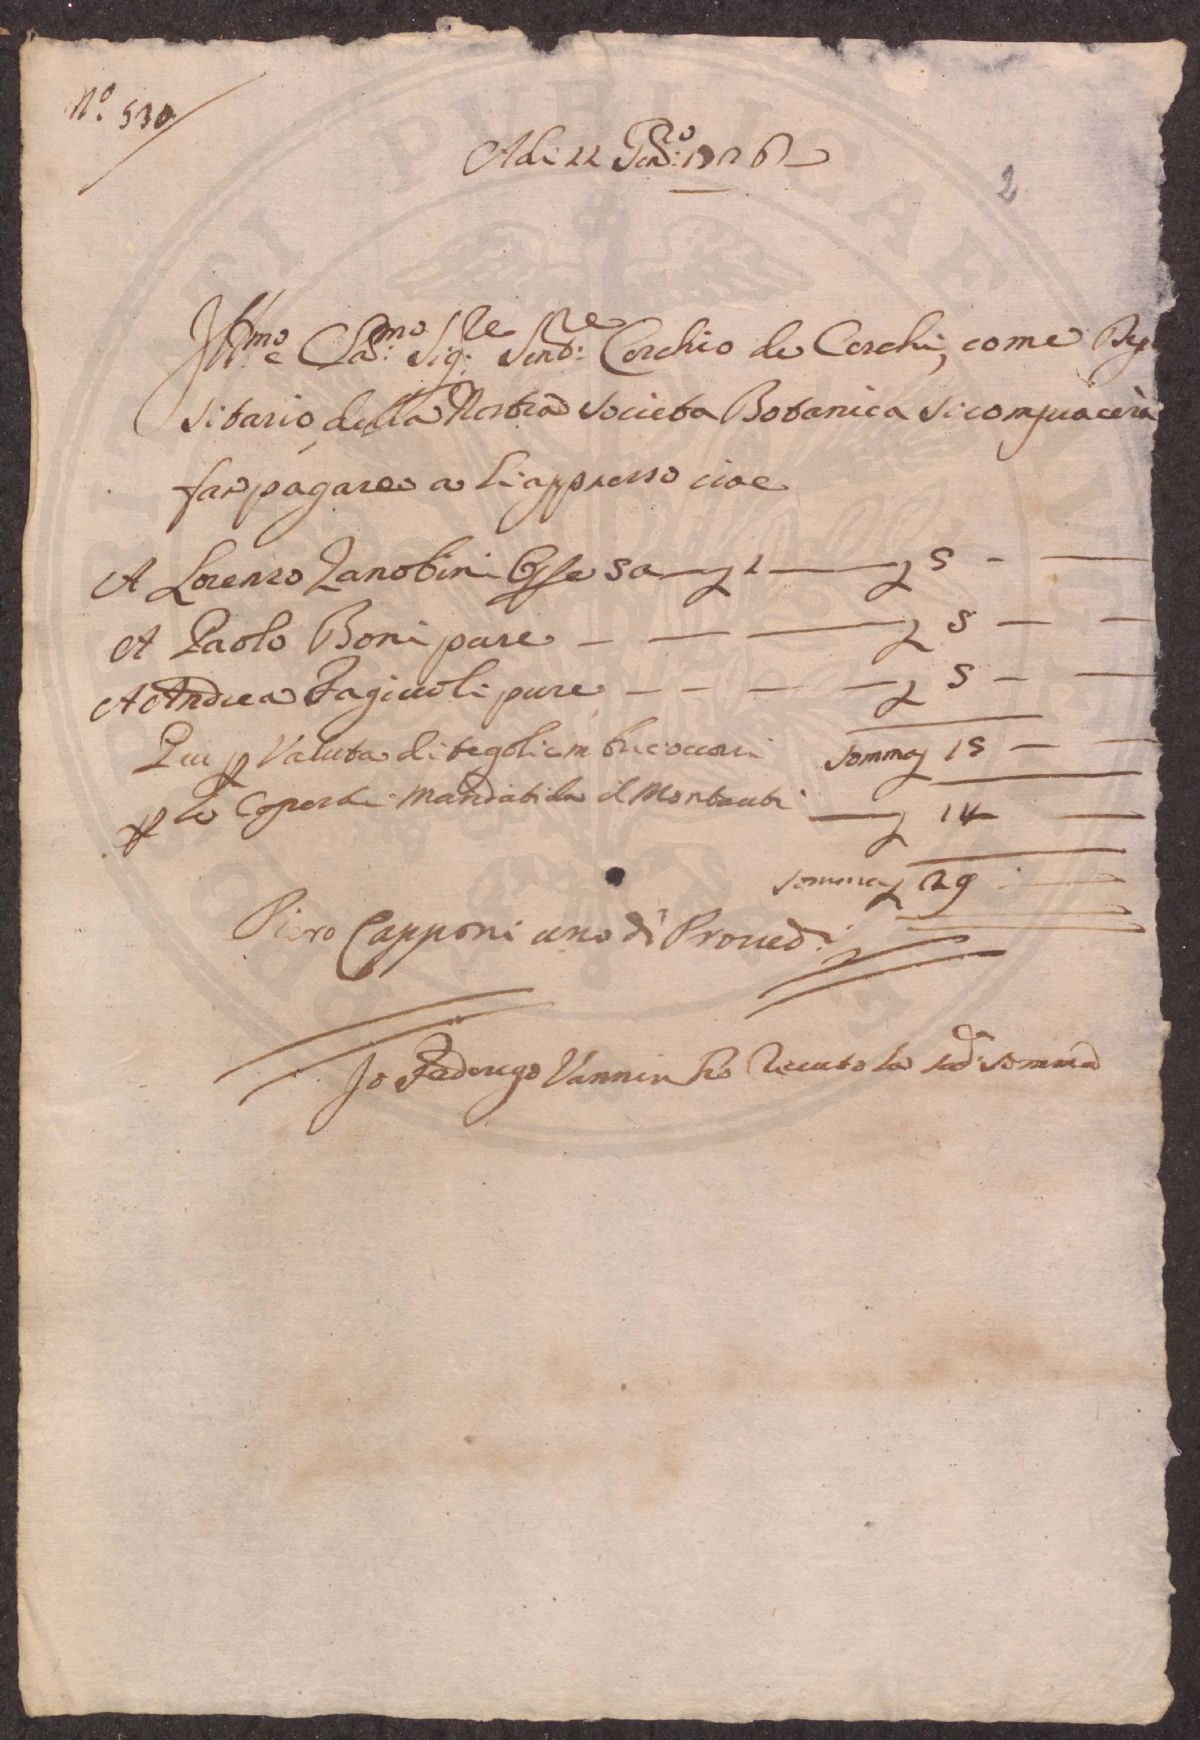 N.º 530
Adi 22 Genn.ro 1726
2
Ill.mo e Clar.mo Sig.re Sen.re Cerchio de Cerchi, come Depo
sitario della Nostra Società Botanica si compiacerà
far pagare a li appresso cioè
A Lorenzo Zanobini 5 —
A Paolo Boni pure — 5 —
A Andrea Fagiuoli pure — 5 —
Piu p Valuta di tegoli embrici occorsi Somma 15 —
p le Coperte Mandati da il Montauti — 14 —
Somma 29 —
Piero Capponi uno di Proued.i
Io Federigo Vannini ho riceuto la sud.a somma